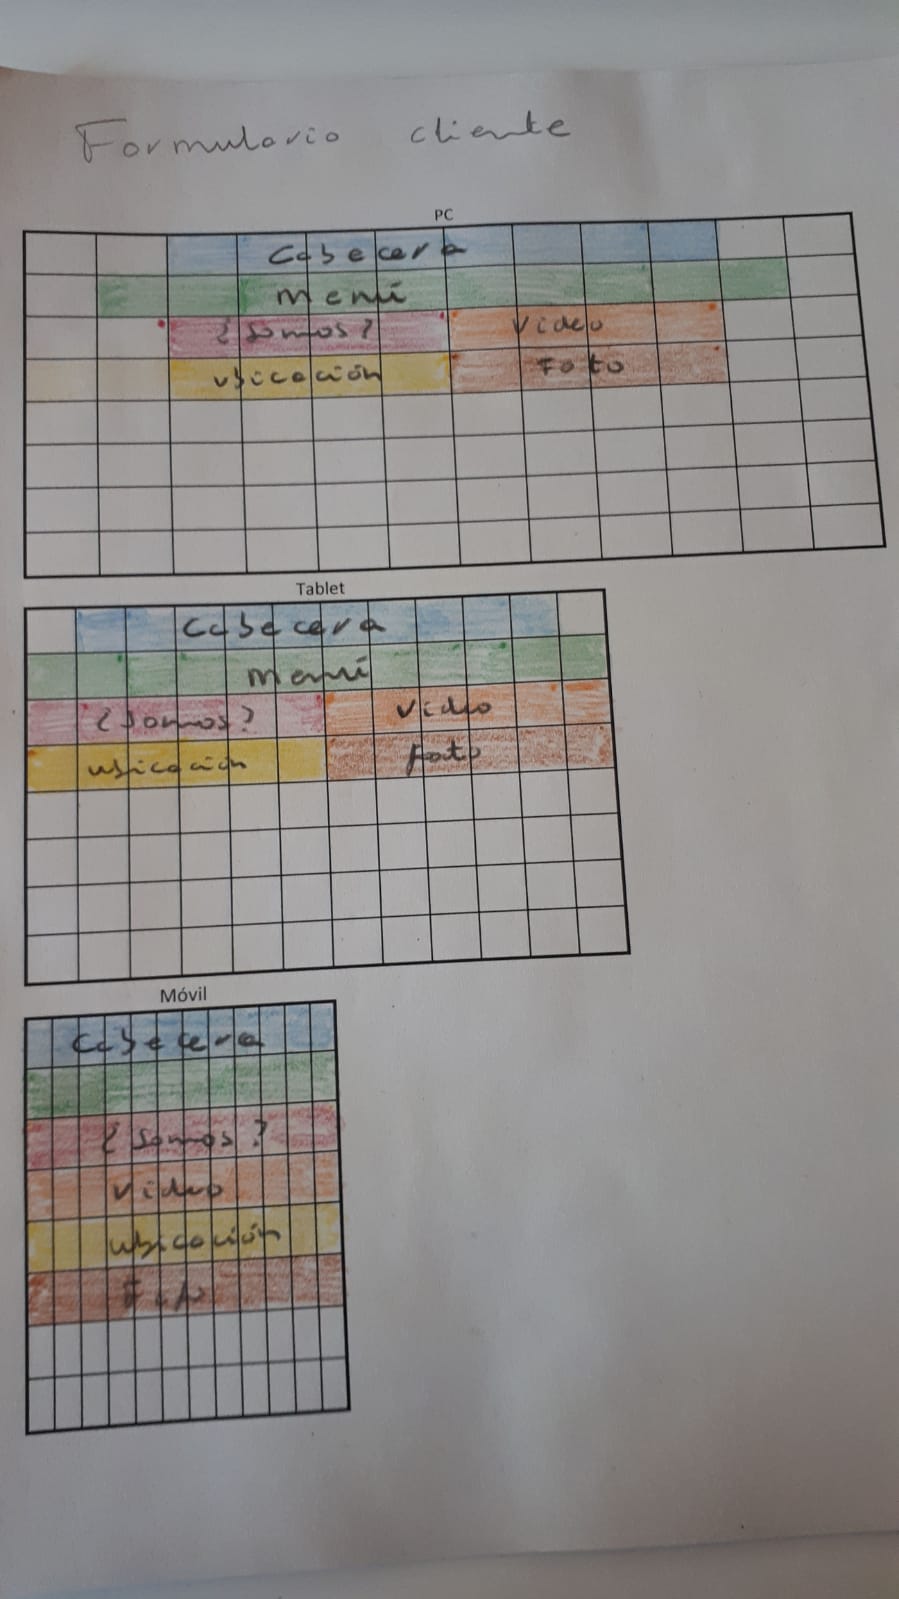 Formulario cliente
PC
Cabecera
menú
¿somos? Video
ubicación Foto
Tablet
Cabecera
menú
¿somos? Video
ubicación Foto
Móvil
Cabecera
¿somos?
Video
ubicación
Foto